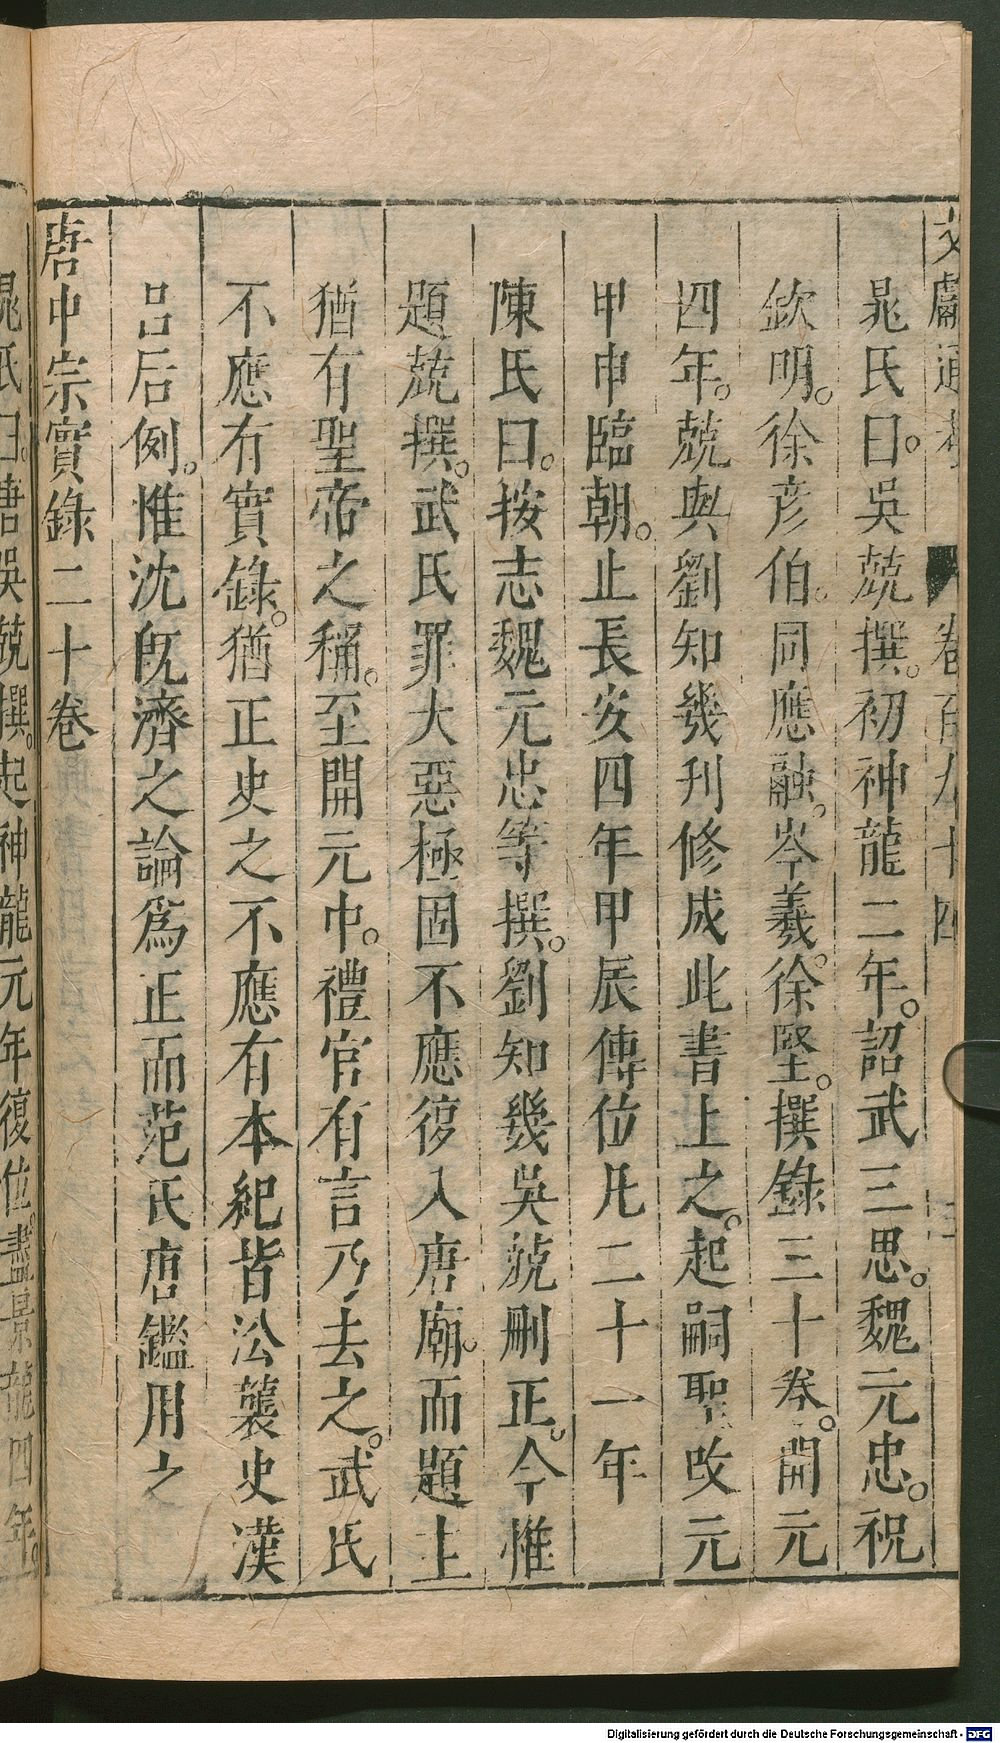 文獻通考 卷百九十四 三
晁氏曰。吳兢撰。初神龍二年。詔武三思。魏元忠。祝
欽明。徐彦伯。同應融。岑羲。徐堅。撰錄三十卷。開元
四年。兢與劉知幾刊修成此書上之。起嗣聖改元
甲申臨朝。止長安四年甲辰傳位凡二十一年
陳氏曰。按志魏元忠等撰。劉知幾吳兢刪正。今惟
題兢撰。武氏罪大惡極固不應復入唐廟。而題主
猶有聖帝之稱。至開元中。禮官有言乃去之。武氏
不應有實錄。猶正史之不應有本紀皆㳂襲史漢
呂后例。惟沈旣濟之論爲正而范氏唐鑑用之
唐中宗實錄二十卷
晁氏曰。唐吳兢撰。起神龍元年復位。盡景龍四年。
Digitalisierung gefördert durch die Deutsche Forschungsgemeinschaft - DFG